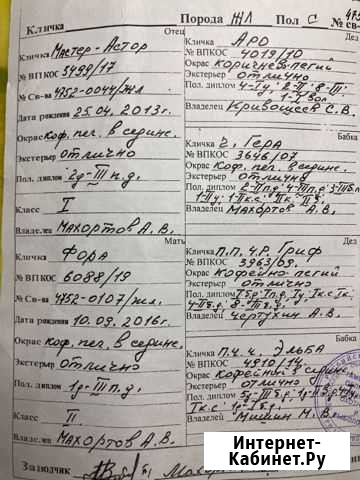 Кличка Порода ЖЛ Пол С №
Отец
Кличка Мастер-Астор
№ ВПКОС 5499/17
№ Св-ва 4752-0044/жл
Дата рождения 25.04.2013г.
Окрас коф. пег. в серине.
Экстерьер отлично
Пол. диплом 2д-III п.д.
Класс I
Владелец Махортов А.В.
Дед
Кличка АРО
№ ВПКОС 4019/10
Окрас коричневопегий
Экстерьер отлично
Пол. диплом
Владелец Кривошеев С.В.
Бабка
Кличка ч. Гера
№ ВПКОС 3646/07
Окрас Коф. пег. в серине.
Экстерьер отлично
Пол. диплом
Владелец Махортов А.В.
Мать
Кличка Фора
№ ВПКОС 6088/19
№ Св-ва 4752-0107/жл.
Дата рождения 10.09.2016г.
Окрас коф. пег. в серине.
Экстерьер отлично
Пол. диплом 1д-III п.д.
Класс II.
Владелец Махортов А.В.
Дед
Кличка П.п. ч.р. Гриф
№ ВПКОС 3963/09.
Окрас кофейно-пегий
Экстерьер отлично
Пол. диплом
Владелец Чертухин А.В.
Бабка
Кличка п.ч.ч. Эльба
№ ВПКОС 4910/14
Окрас кофейный в серине.
Экстерьер отлично
Пол. диплом
Владелец Мишин М.В.
Заводчик
Интернет-
Кабинет.Ру